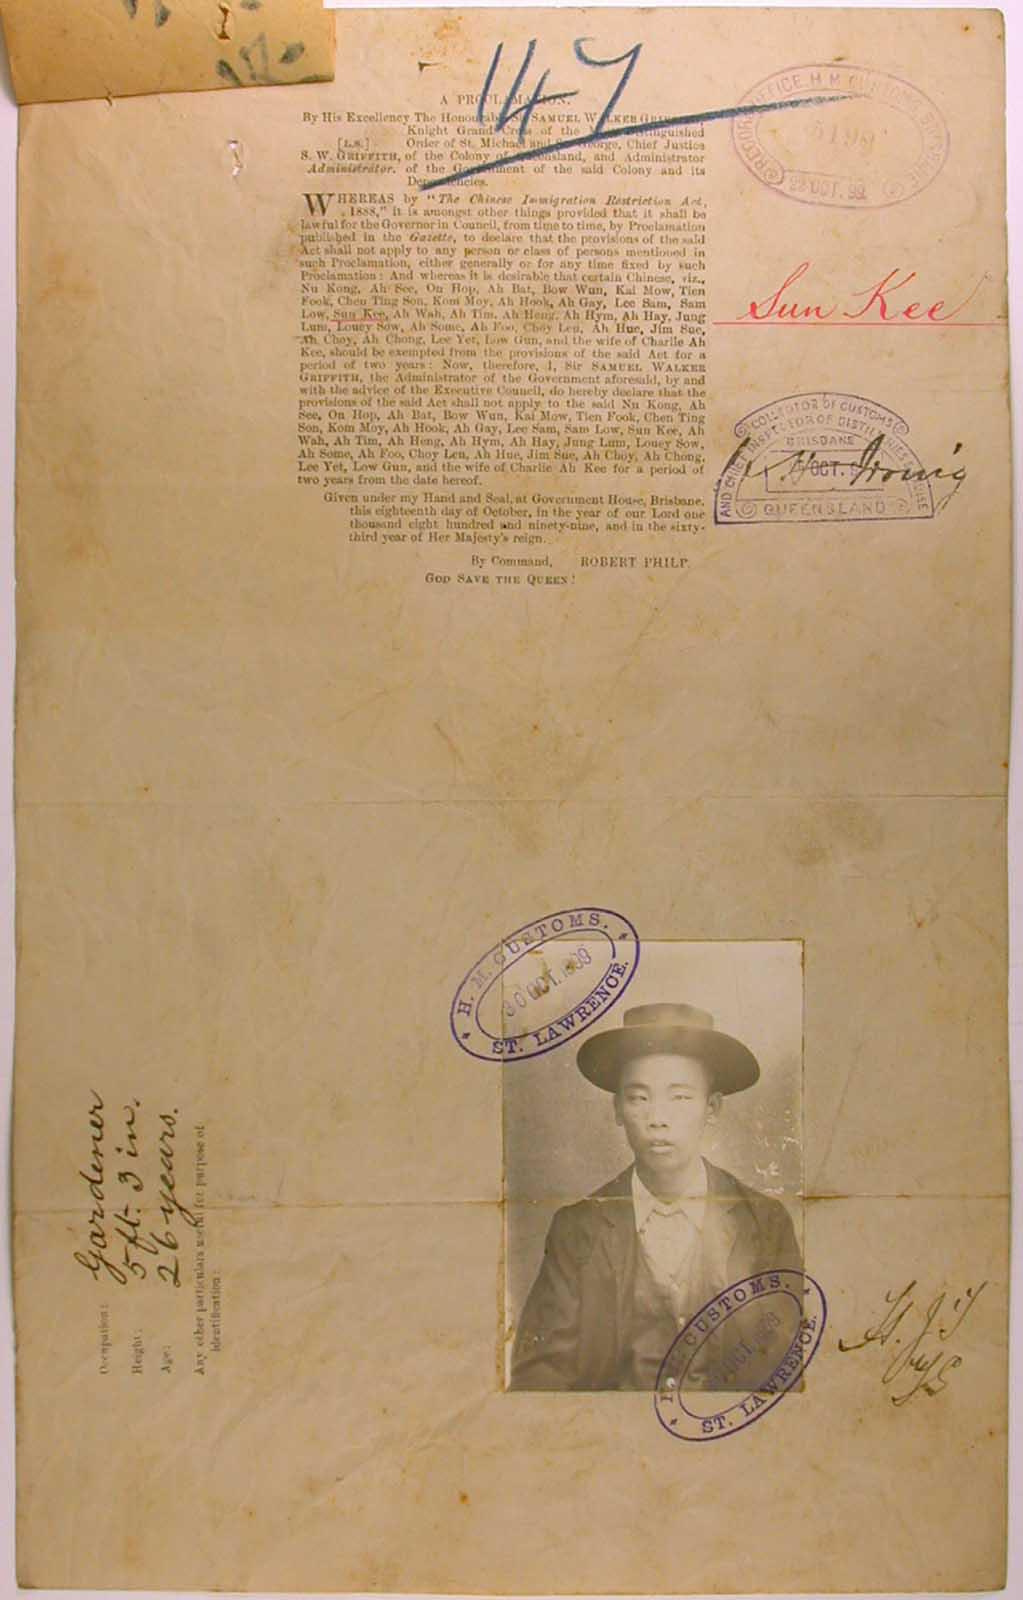 147
A PROCLAMATION.
By His Excellency The Honourable Sir SAMUEL WALKER GRIFFITH,
Knight Grand Cross of the Most Distinguished
[L.S.] Order of St. Michael and St. George, Chief Justice
S. W. GRIFFITH, of the Colony of Queensland, and Administrator
Administrator. of the Government of the said Colony and its
Dependencies.
WHEREAS by "The Chinese Immigration Restriction Act,
1888," it is amongst other things provided that it shall be
lawful for the Governor in Council, from time to time, by Proclamation
published in the Gazette, to declare that the provisions of the said
Act shall not apply to any person or class of persons mentioned in
such Proclamation, either generally or for any time fixed by such
Proclamation: And whereas it is desirable that certain Chinese, viz.,
Nu Kong, Ah See, On Hop, Ah Bat, Bow Wun, Kai Mow, Tien
Fook, Chen Ting Son, Kom Moy, Ah Hook, Ah Gay, Lee Sam, Sam
Low, Sun Kee, Ah Wah, Ah Tim, Ah Heng, Ah Hym, Ah Hay, Jung
Lum, Louey Sow, Ah Some, Ah Foo, Choy Leu, Ah Hue, Jim Sue,
Ah Choy, Ah Chong, Lee Yet, Low Gun, and the wife of Charlie Ah
Kee, should be exempted from the provisions of the said Act for a
period of two years: Now, therefore, I, Sir SAMUEL WALKER
GRIFFITH, the Administrator of the Government aforesaid, by and
with the advice of the Executive Council, do hereby declare that the
provisions of the said Act shall not apply to the said Nu Kong, Ah
See, On Hop, Ah Bat, Bow Wun, Kai Mow, Tien Fook, Chen Ting
Son, Kom Moy, Ah Hook, Ah Gay, Lee Sam, Sam Low, Sun Kee, Ah
Wah, Ah Tim, Ah Heng, Ah Hym, Ah Hay, Jung Lum, Louey Sow,
Ah Some, Ah Foo, Choy Leu, Ah Hue, Jim Sue, Ah Choy, Ah Chong,
Lee Yet, Low Gun, and the wife of Charlie Ah Kee for a period of
two years from the date hereof.
Given under my Hand and Seal, at Government House, Brisbane,
this eighteenth day of October, in the year of our Lord one
thousand eight hundred and ninety-nine, and in the sixty-
third year of Her Majesty's reign.
By Command, ROBERT PHILP.
GOD SAVE THE QUEEN!
RECORD OFFICE. H. M. CUSTOMS
Sun Kee
COLLECTOR OF CUSTOMS
AND CHIEF INSPECTOR OF DISTILLERIES
BRISBANE
OCT.
QUEENSLAND
H. M. CUSTOMS.
30 OCT. 1899
ST. LAWRENCE.
H. M. CUSTOMS.
OCT. 1899
ST. LAWRENCE.
Occupation: Gardener
Height: 5 ft. 3 in.
Age: 26 years.
Any other particulars useful for purpose of
identification: